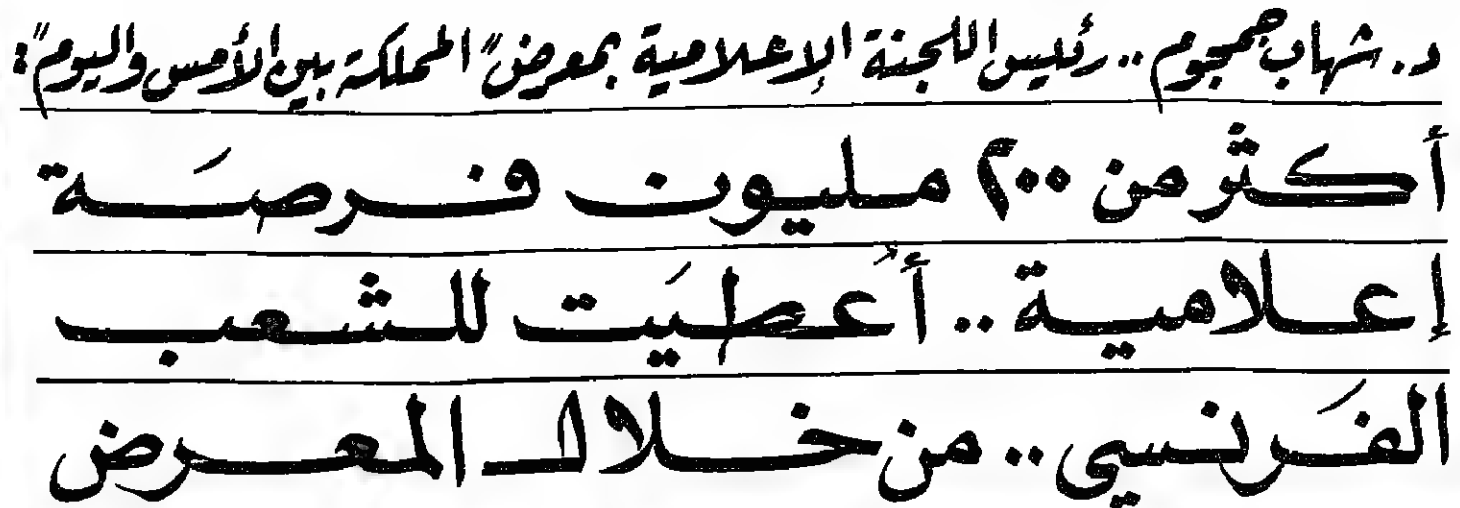 د. شهاب جمجوم .. رئيس اللجنة الإعلامية بمعرض "المملكة بين الأمس واليوم":
أكثر من ٢٠٠ مليون فرصَة
إعلامية .. أُعطيَت للشعب
الفَرنسي .. من خلال المعرض